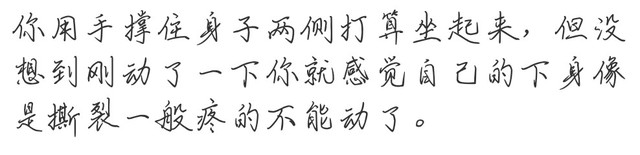 你用手撑住身子两侧打算坐起来，但没
想到刚动了一下你就感觉自己的下身像
是撕裂一般疼的不能动了。